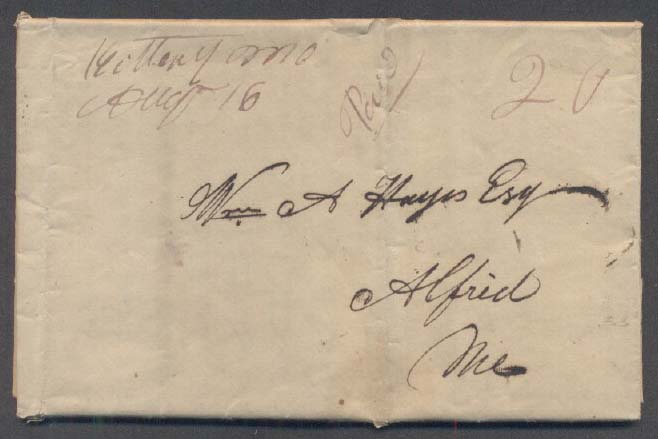 Kittery Me
Augt 16
Paid 20
Wm A Hayes Esq
Alfred
Me